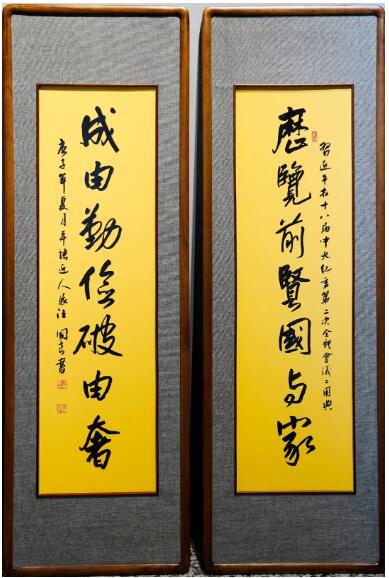 習近平在十八届中央纪委第二次全體會議上用典
歷覽前賢國与家
成由勤儉破由奢
庚子年夏月平近人汪國書